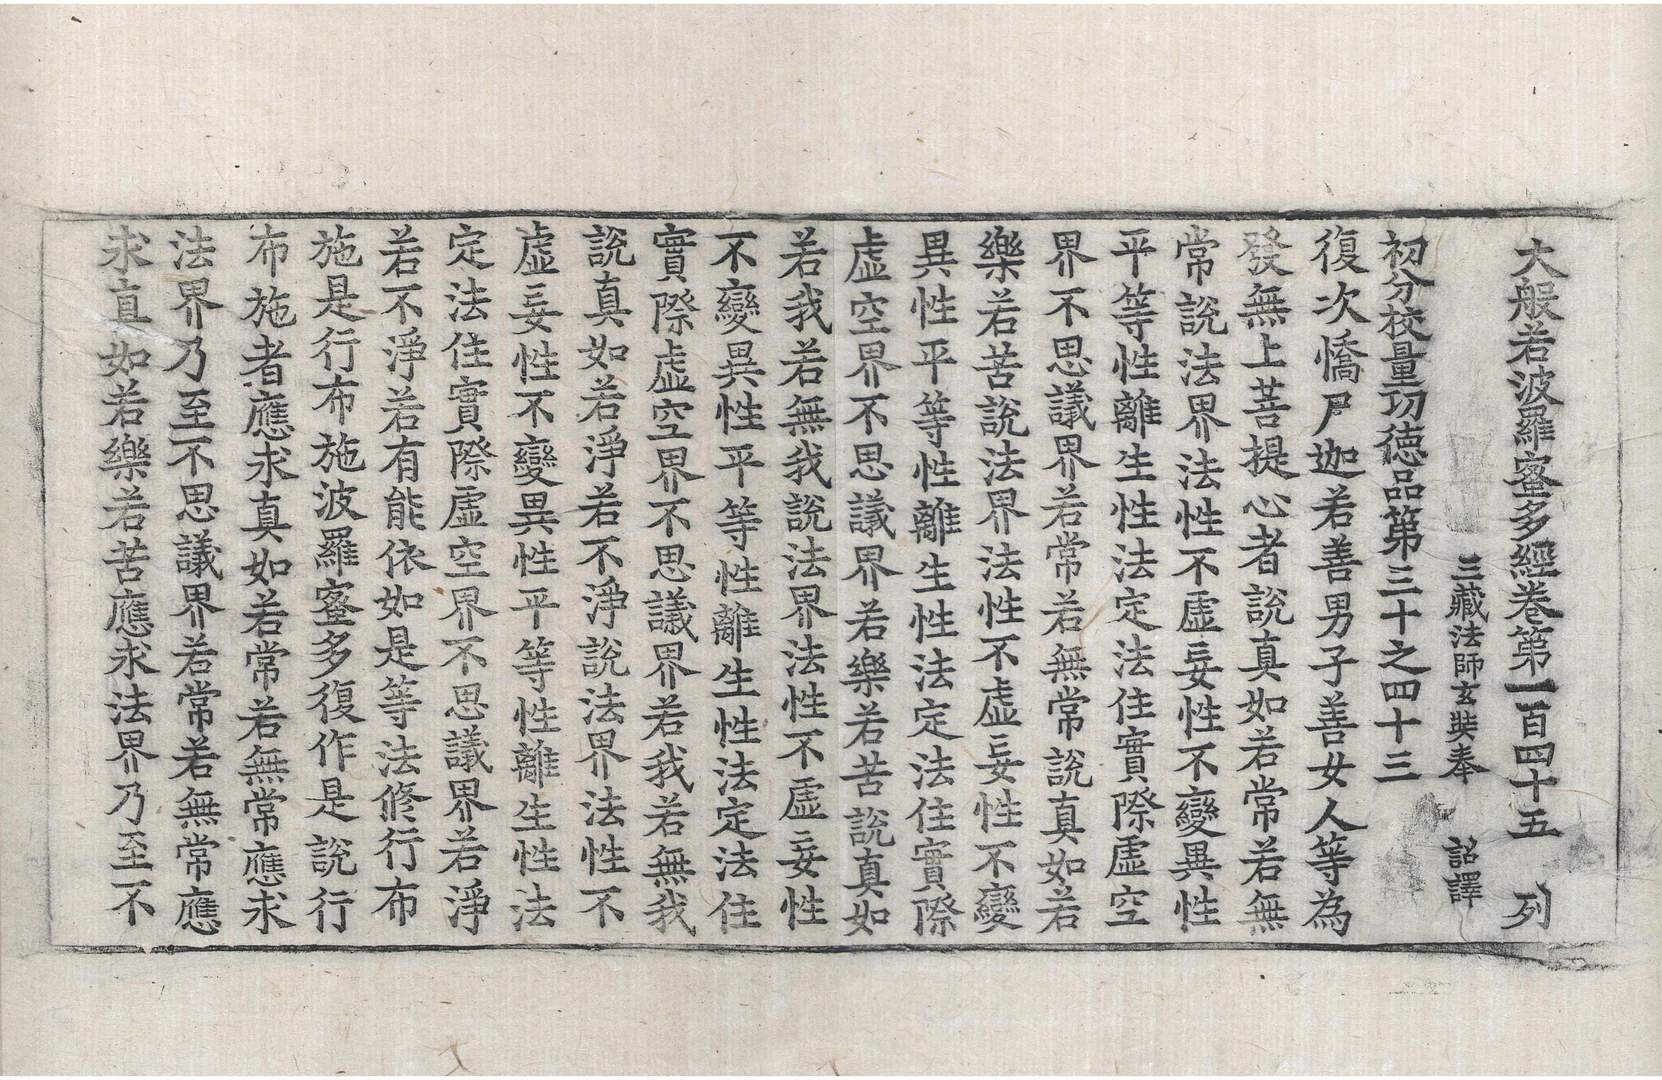 大般若波羅蜜多經卷第一百四十五　列
三藏法師玄奘奉　詔譯
初分校量功德品第三十之四十三
復次憍尸迦若善男子善女人等為
發無上菩提心者說真如若常若無
常說法界法性不虛妄性不變異性
平等性離生性法定法住實際虛空
界不思議界若常若無常說真如若
樂若苦說法界法性不虛妄性不變
異性平等性離生性法定法住實際
虛空界不思議界若樂若苦說真如
若我若無我說法界法性不虛妄性
不變異性平等性離生性法定法住
實際虛空界不思議界若我若無我
說真如若淨若不淨說法界法性不
虛妄性不變異性平等性離生性法
定法住實際虛空界不思議界若淨
若不淨若有能依如是等法修行布
施是行布施波羅蜜多復作是說行
布施者應求真如若常若無常應求
法界乃至不思議界若常若無常應
求真如若樂若苦應求法界乃至不